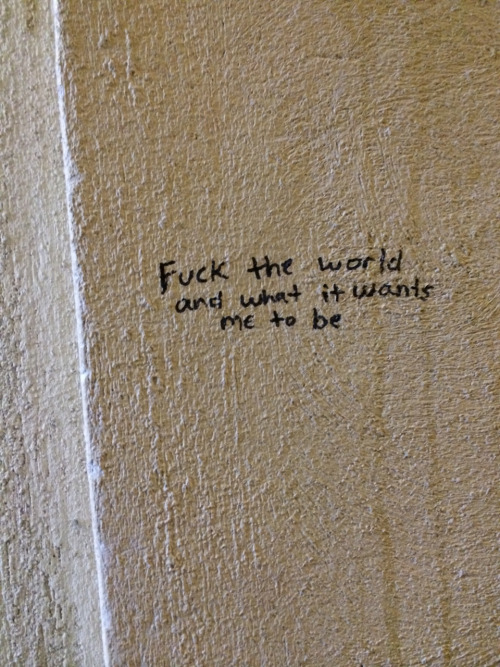 Fuck the world
and what it wants
me to be